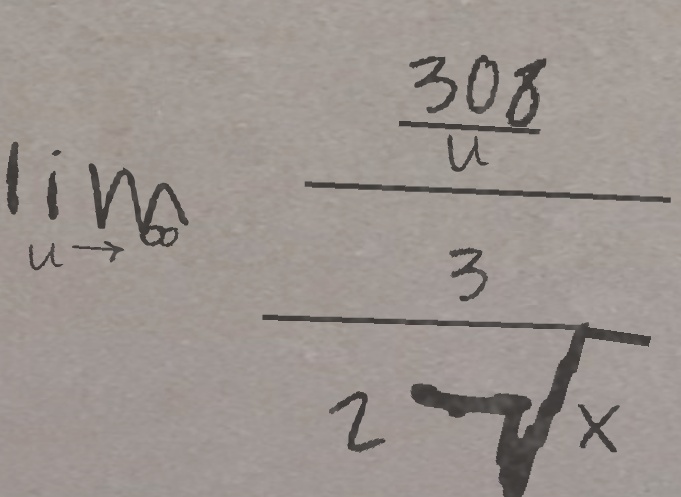 lim u→∞
308
u
3
2 √x